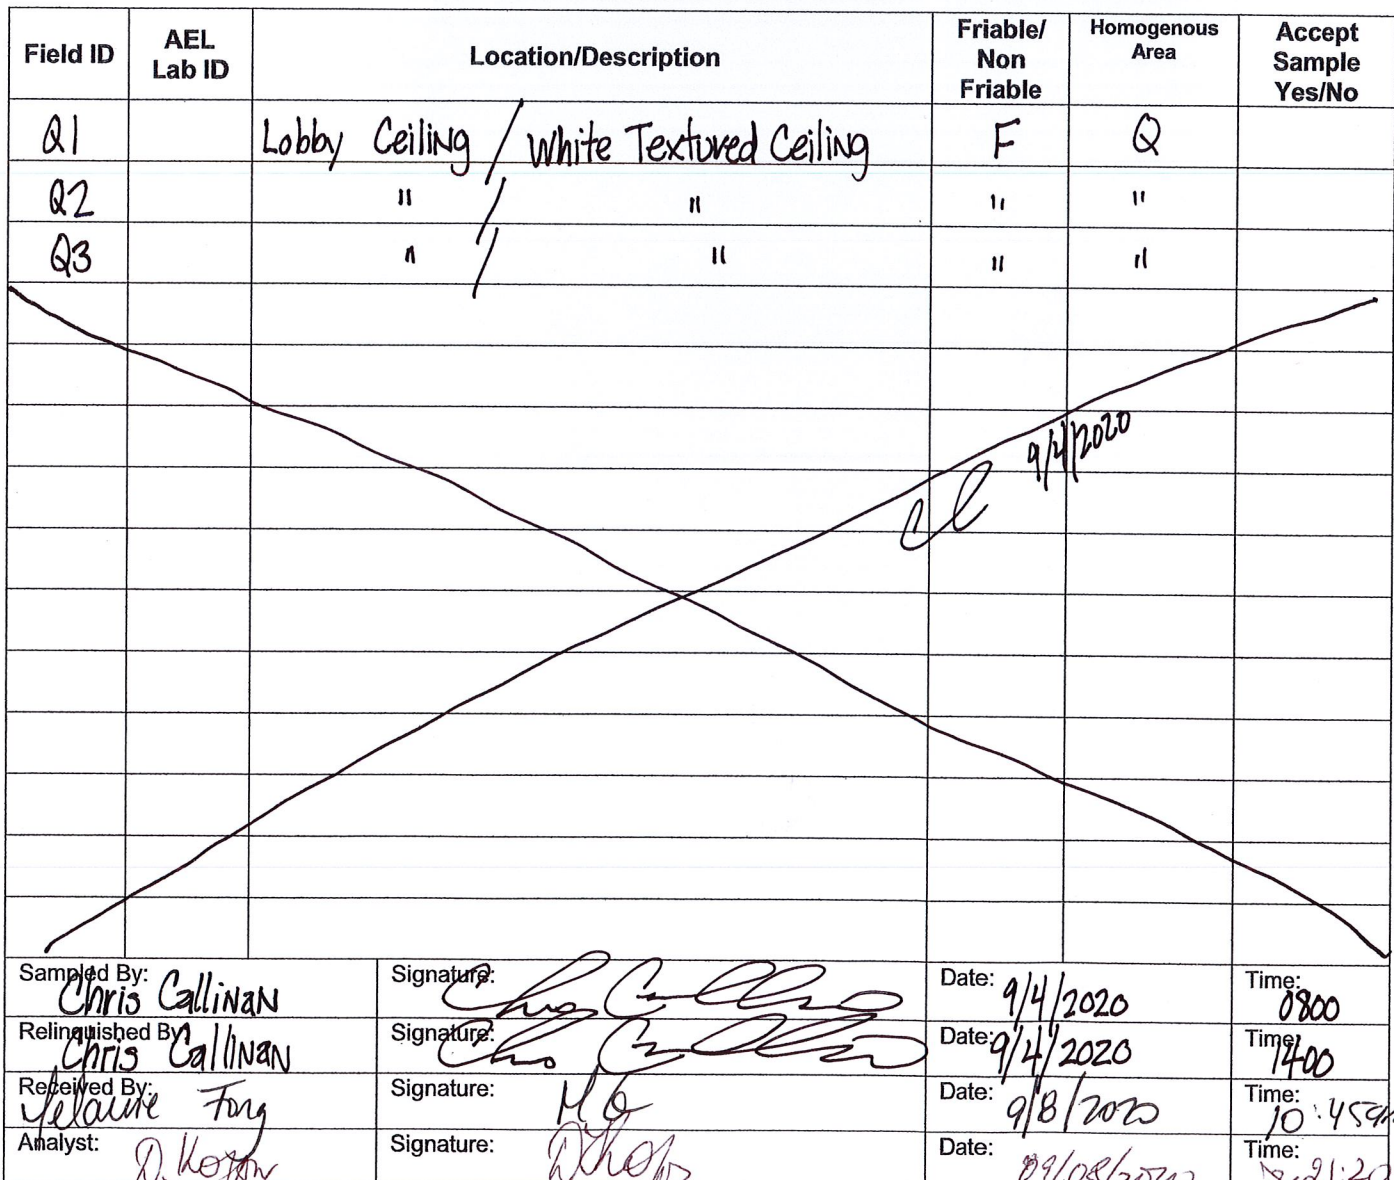 Field ID AEL Lab ID Location/Description Friable/ Non Friable Homogenous Area Accept Sample Yes/No
Q1 Lobby Ceiling / White Textured Ceiling F Q
Q2 " / " " "
Q3 " / " " "
9/4/2020
Sampled By: Chris Callinan Signature: Date: 9/4/2020 Time: 0800
Relinquished By: Chris Callinan Signature: Date: 9/4/2020 Time: 1400
Received By: Melanie Fong Signature: Date: 9/8/2020 Time: 10:45am
Analyst: Signature: Date: 09/08/2020 Time: